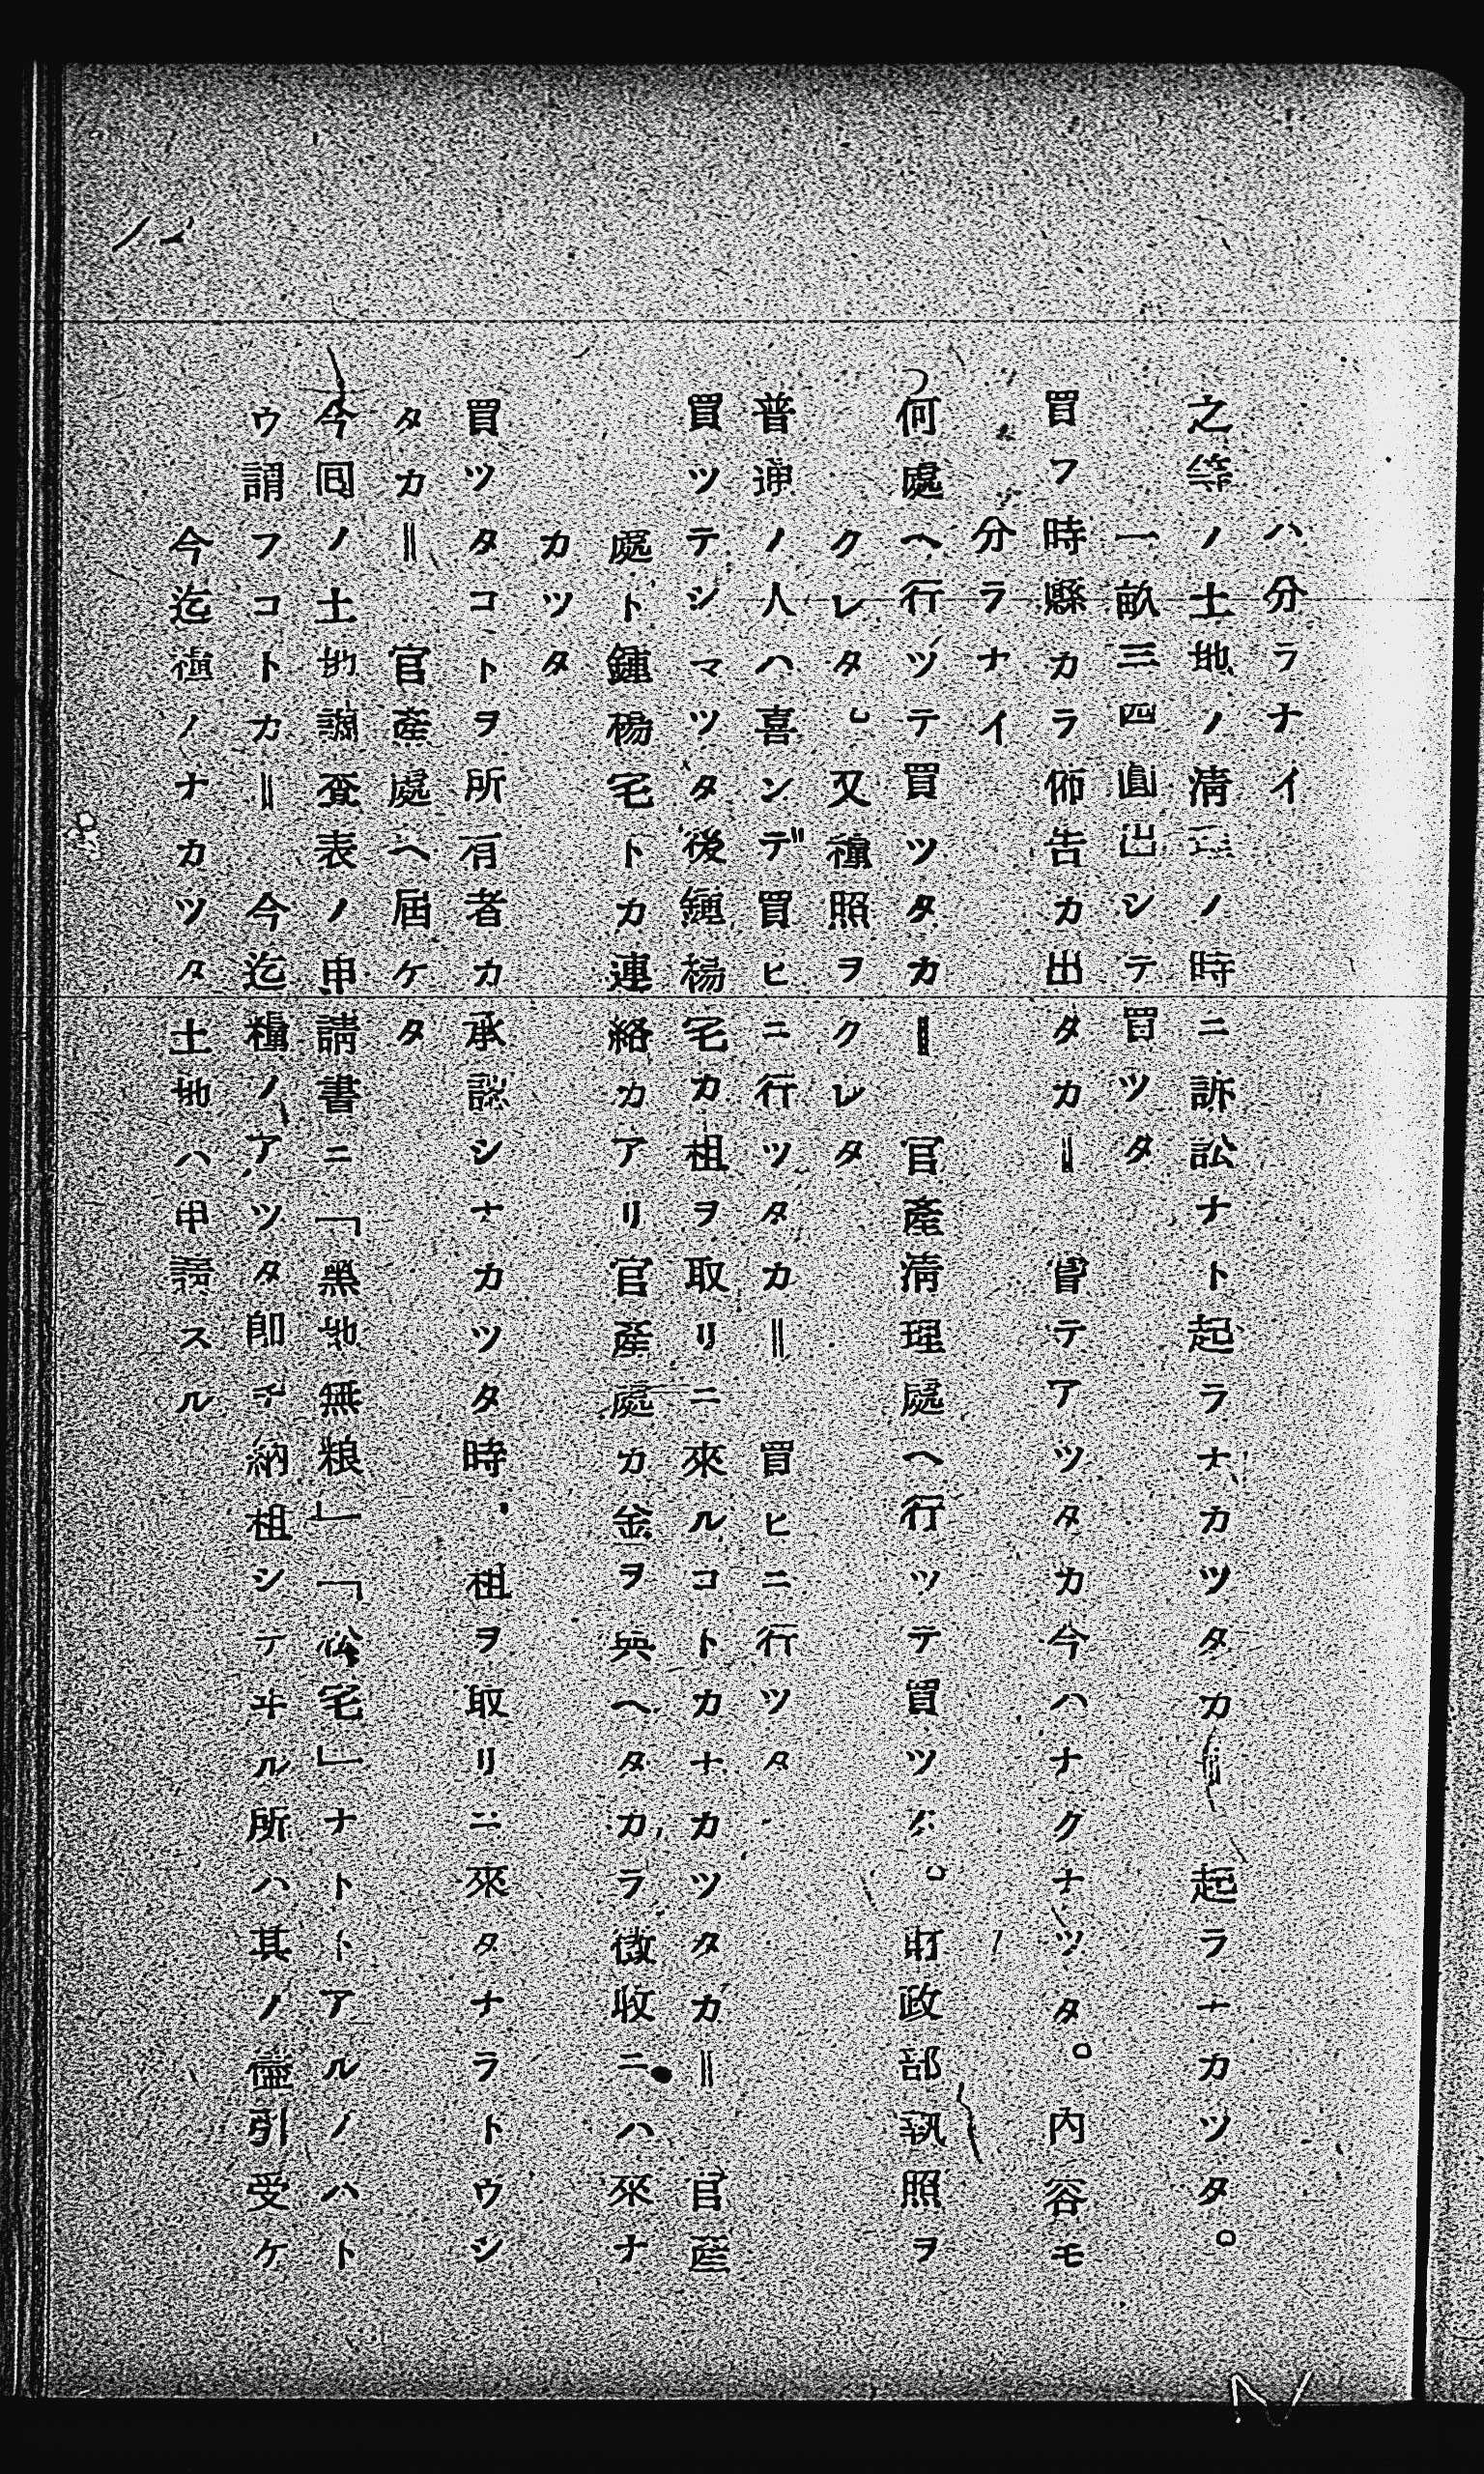 ハ分ラナイ
之等ノ土地ノ清理ノ時ニ訴訟ナト起ラナカツタカ＝　起ラナカツタ。
一畝三四圓出シテ買ツタ
買フ時縣カラ佈告カ出タカ＝　曾テアツタカ今ハナクナツタ。内容モ
分ラナイ
何處ヘ行ツテ買ツタカ＝　官產清理處ヘ行ツテ買ツタ。財政部執照ヲ
クレタ　又糧照ヲクレタ
普通ノ人ハ喜ンデ買ヒニ行ツタカ＝　買ヒニ行ツタ
買ツテシマツタ後鍾楊宅カ租ヲ取リニ來ルコトカナカツタカ＝　官產
處ト鍾楊宅トカ連絡カアリ官產處カ金ヲ與ヘタカラ徴收ニハ來ナ
カツタ
買ツタコトヲ所有者カ承認シナカツタ時，租ヲ取リニ來タナラトウシ
タカ＝　官產處ヘ屆ケタ
今囘ノ土地調査表ノ申請書ニ「黑地無粮」「公宅」ナトトアルノハト
ウ謂フコトカ＝　今迄糧ノアツタ卽チ納租シテヰル所ハ其ノ儘引受ケ
今迄糧ノナカツタ土地ハ申請スル